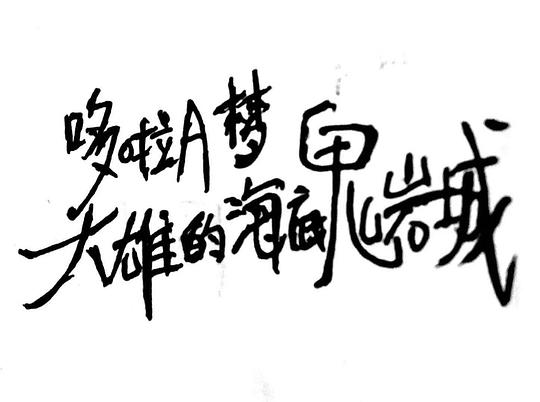 哆啦A梦
大雄的海底鬼岩城